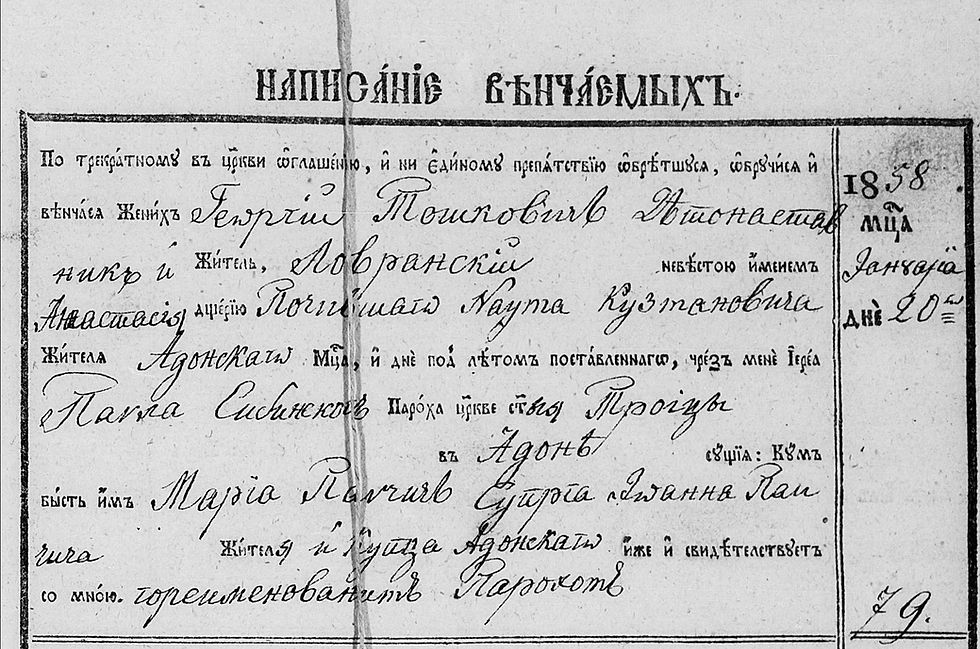 НАПИСА́НІЕ ВѢНЧА́ЕМЫХЪ.
По трекра́тному въ цр҃кви ѡ҆глаше́нїю, и҆ ни є҆ди́ному препѧ́тствїю ѡ҆брѣ́тшусѧ, ѡ҆бручи́сѧ и҆
вѣнча́сѧ Жени́хъ Геѡргій Тошковичъ Дѣтонастав
никъ и Жи́тель, Ловранскій невѣ́стою и҆́менемъ
Анастасія дще́рїю Почившагѡ Наута Кузмановича
Жи́телѧ Адонскагѡ Мц҃а, и҆ днѐ под̾ лѣ́томъ поста́вленнагѡ, чрез̾ менѐ І҆ере́а
Павла Паро́ха цр҃кве ст҃ыя Троіцы
въ Адонѣ сꙋ́щїѧ: Кꙋмъ
бы́сть и҆̀мъ Маріа Паичичъ Супрꙋга Іѡанна Паи
чича Жи́телѧ и Купца Адонскагѡ и҆́же и҆ свидѣ́телствуетъ
со мно́ю. гореименованимъ Парохомъ
1858
мц҃а
Іануаріа
днѐ 20ѡ
79.